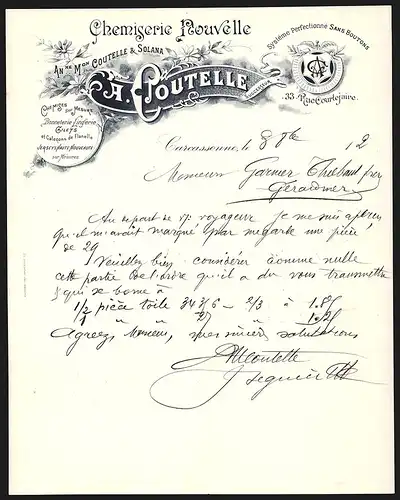 Chemiserie Nouvelle
An.ne Mon Coutelle & Solana
Système Perfectionné Sans Boutons
A. Coutelle
Successeur
33. Rue Courtejaire.
Chemises sur Mesure
Bonneterie Lingerie
Gilets
et Caleçons de Flanelle
sur Mesures
Carcassonne, le 8 9bre 1 2
Monsieur Garnier Thiebaut frères
Gerardmer
Au départ de v/ voyageur je me suis aperçu
qu'il m'avait marqué par mégarde une pièce
de 29
Veuillez bien considérer comme nulle
cette partie de l'ordre qu'il a du vous transmettre
qui se borne à
1/2 pièce toile 3476 - 2/3 à 1.85
Agreez Monsieur, mes sincères salutations
A Coutelle